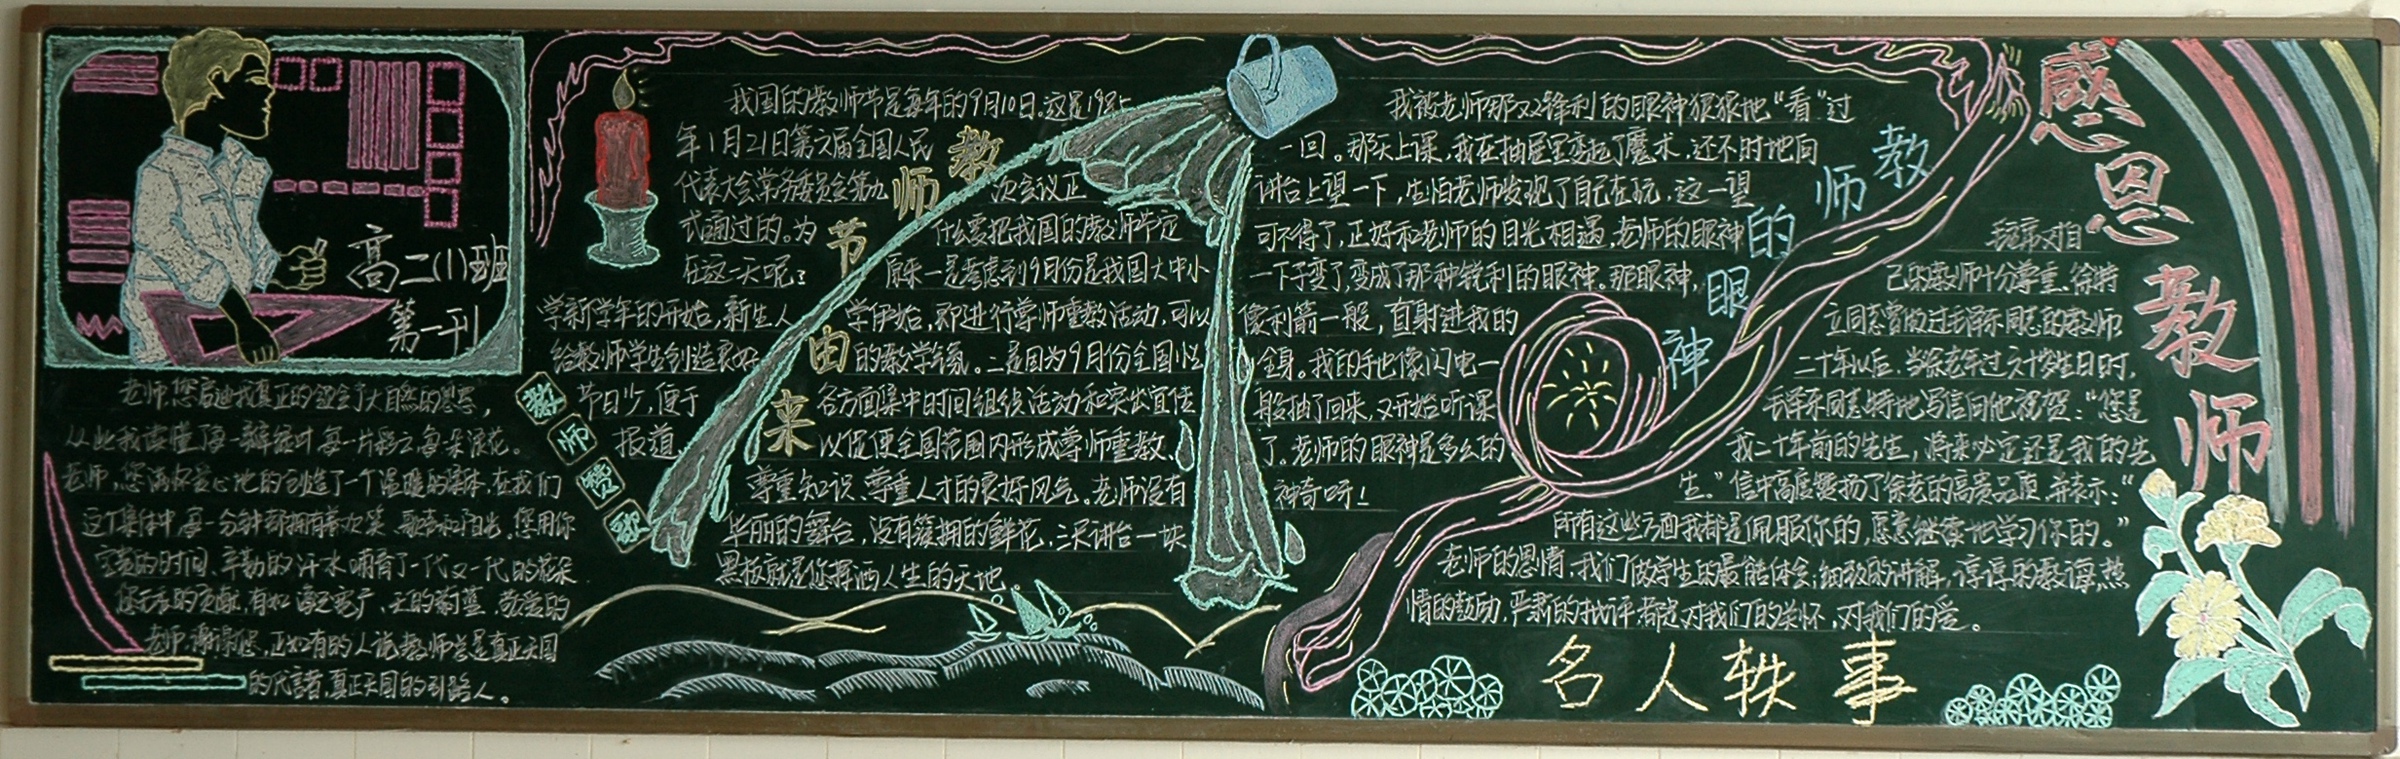 感恩教师
高二(1)班
第一刊
教师赞歌
老师,您启迪我真正的领会了大自然的恩惠,
从此我读懂了每一瓣绿叶每一片彩云每朵浪花。
老师,您满怀爱心地的创造了一个温暖的集体,在我们
这个集体中,每一分钟都拥有着欢笑、歌声和阳光。您用你
宝贵的时间、辛勤的汗水哺育了一代又一代的花朵
您无私的贡献,有如海之宽广、天的蔚蓝、敬爱的
老师,谢谢您,正如有的人说教师党是真正天国
的代言者,真正天国的引路人。
教师节由来
我国的教师节是每年的9月10日。这是1985
年1月21日第六届全国人民
代表大会常务委员会第九次会议正
式通过的。为什么要把我国的教师节定
在这一天呢?原来一是考虑到9月份是我国大中小
学新学年的开始,新生入学伊始,即进行尊师重教活动,可以
给教师学生创造良好的教学气氛。二是因为9月份全国性
节日少,便于各方面集中时间组织活动和突出宣传
报道,以促使全国范围内形成尊师重教、
尊重知识、尊重人才的良好风气。老师没有
华丽的舞台,没有簇拥的鲜花,三尺讲台一块
黑板就是您挥洒人生的天地。
教师的眼神
我被老师那双锋利的眼神狠狠地“看”过
一回。那天上课,我在抽屉里变起了魔术,还不时地向
讲台上望一下,生怕老师发现了自己在玩,这一望
可不得了,正好和老师的目光相遇,老师的眼神
一下子变了,变成了那种锐利的眼神。那眼神,
像利箭一般,直射进我的
全身。我的手也像闪电一
般抽了回来,又开始听课
了。老师的眼神是多么的
神奇呀!
毛主席对自
己的教师十分尊重、徐特
立同志曾做过毛泽东同志的教师
二十年以后,当徐老年过六十岁生日时,
毛泽东同志特地写信向他祝贺:“您是
我二十年前的先生,将来必定还是我的先
生。”信中高度赞扬了徐老的高贵品质,并表示:“
所有这些方面我都是佩服你的,愿意继续地学习你的。”
老师的恩情,我们做学生的最能体会;细致的讲解,谆谆的教诲,热
情的鼓励,严肃的批评,都是对我们的关怀,对我们的爱。
名人轶事